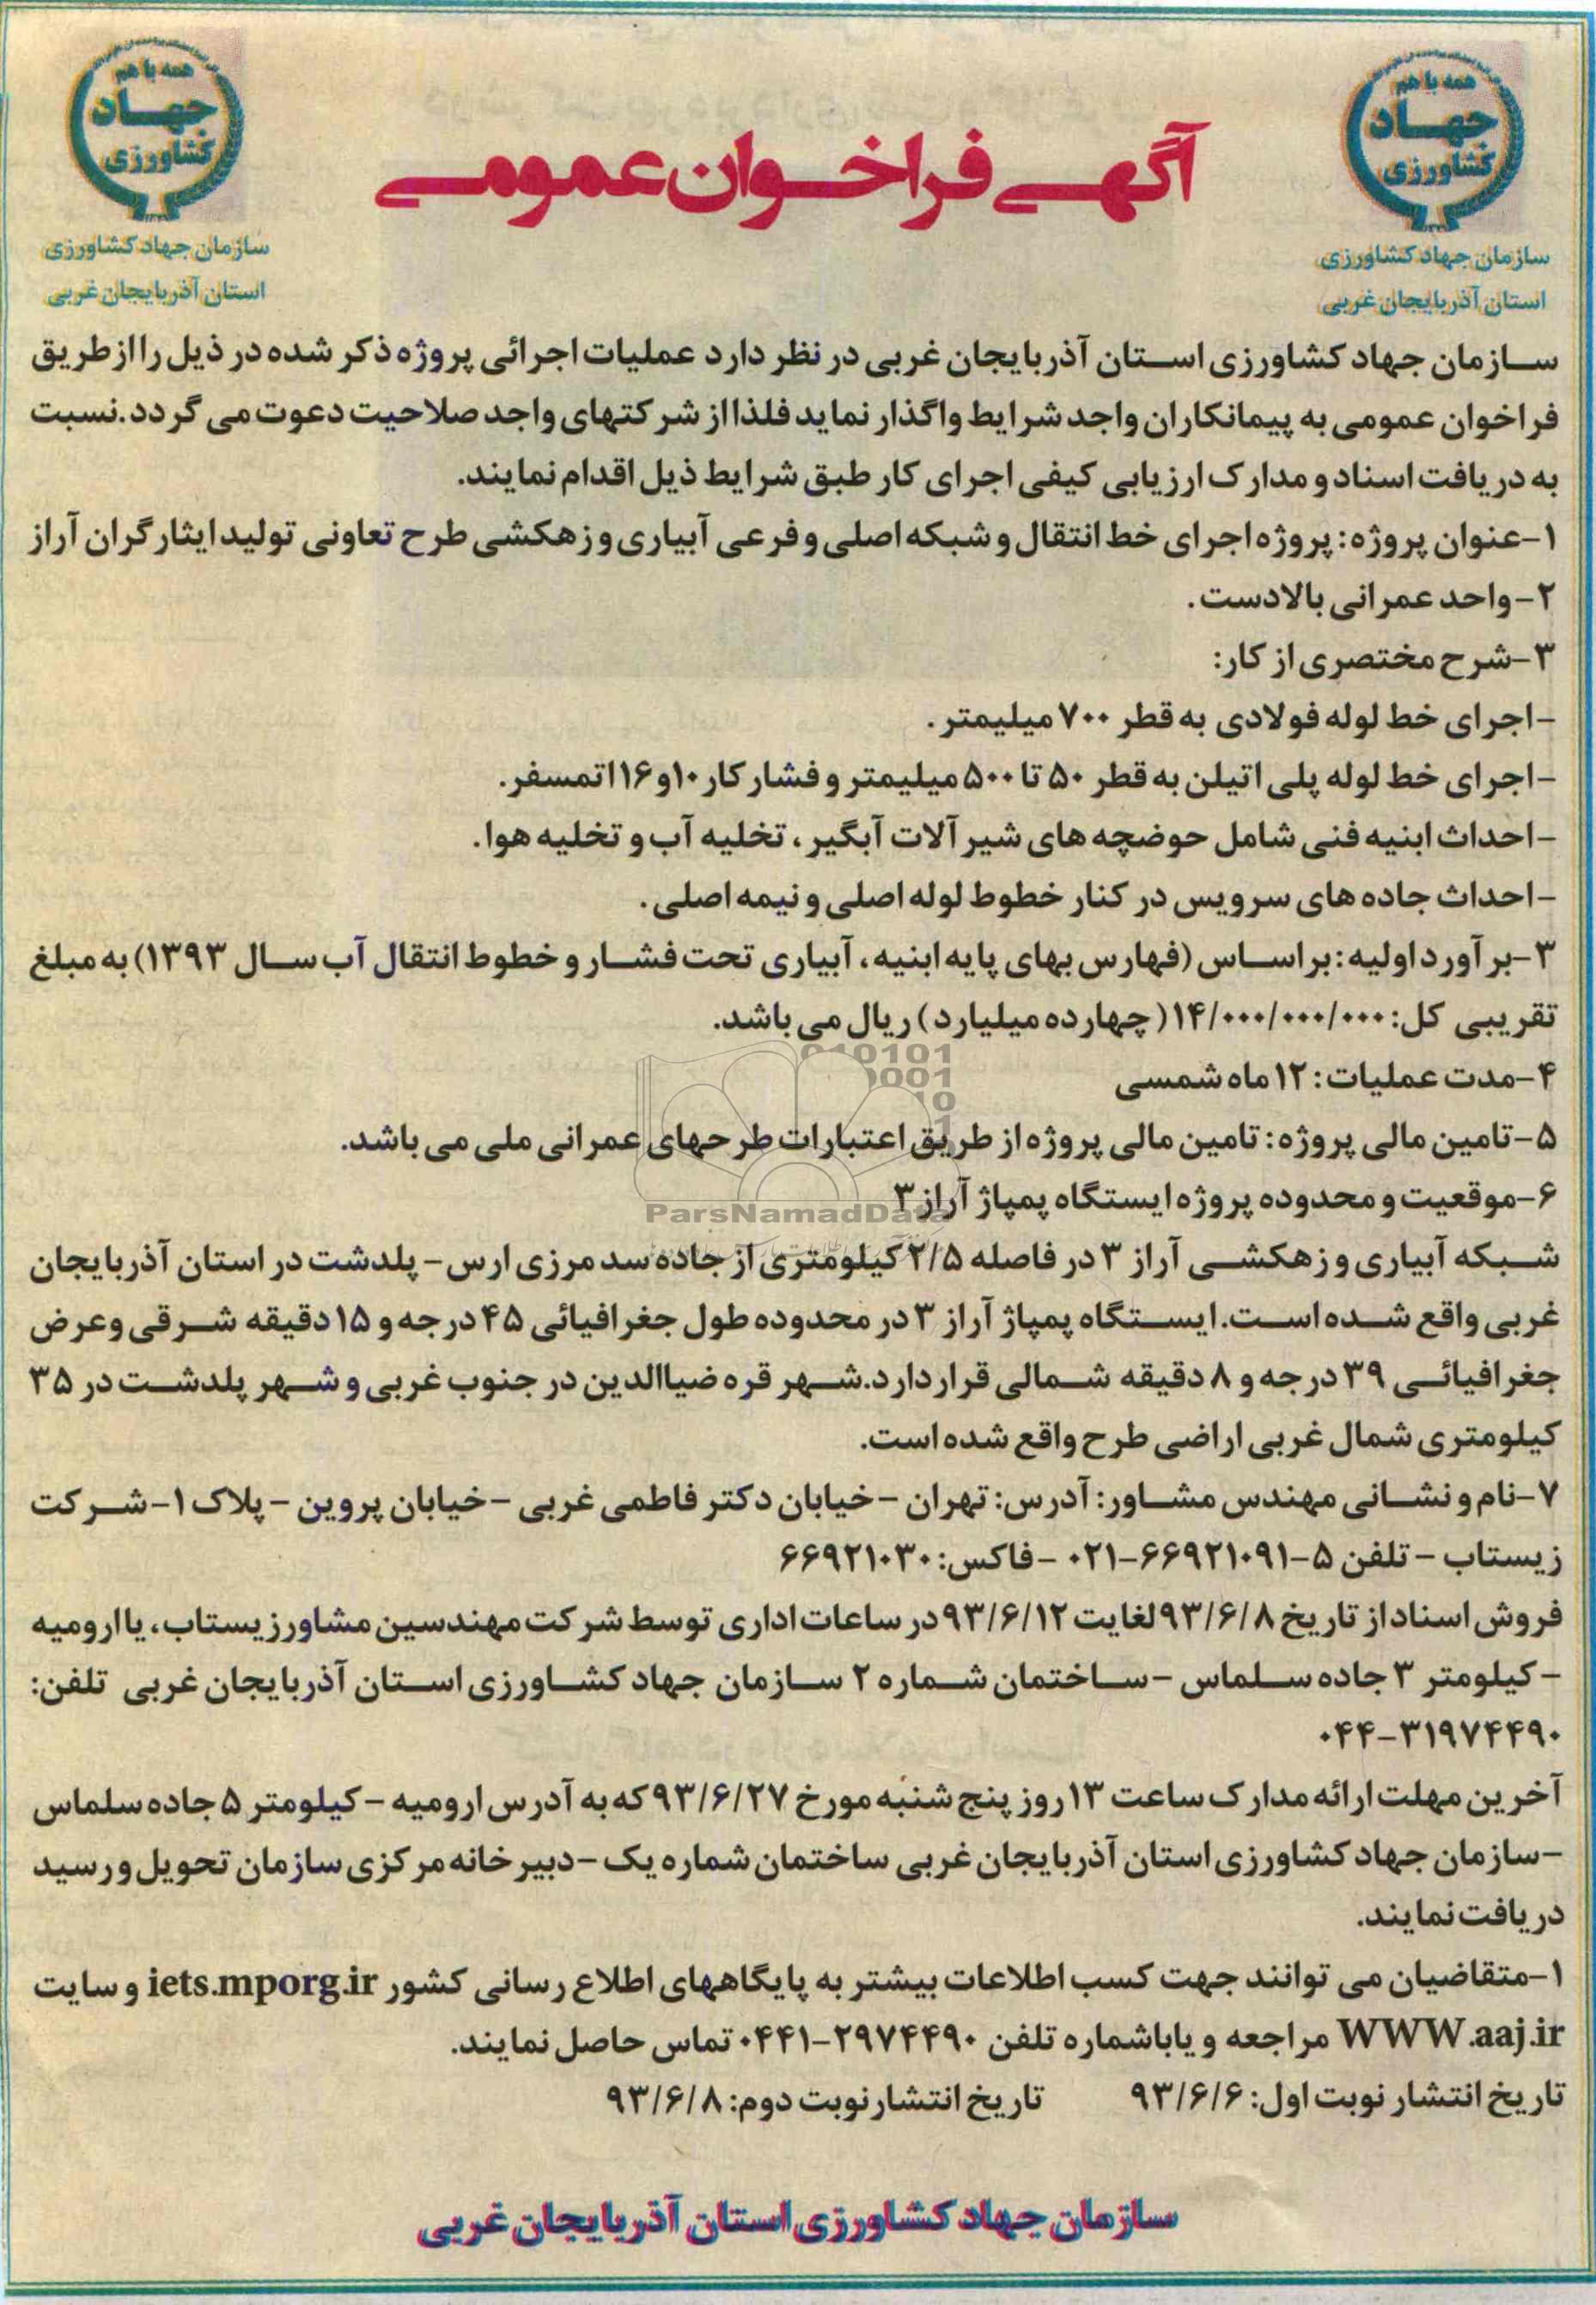 همه با هم
جهاد
کشاورزی
سازمان جهاد کشاورزی
استان آذربایجان غربی
همه با هم
جهاد
کشاورزی
سازمان جهاد کشاورزی
استان آذربایجان غربی
آگهی فراخوان عمومی
سازمان جهاد کشاورزی استان آذربایجان غربی در نظر دارد عملیات اجرائی پروژه ذکر شده در ذیل را از طریق
فراخوان عمومی به پیمانکاران واجد شرایط واگذار نماید فلذا از شرکتهای واجد صلاحیت دعوت می گردد.نسبت
به دریافت اسناد و مدارک ارزیابی کیفی اجرای کار طبق شرایط ذیل اقدام نمایند.
۱-عنوان پروژه: پروژه اجرای خط انتقال و شبکه اصلی و فرعی آبیاری و زهکشی طرح تعاونی تولید ایثارگران آراز
۲-واحد عمرانی بالادست.
۳-شرح مختصری از کار:
-اجرای خط لوله فولادی به قطر ۷۰۰ میلیمتر.
-اجرای خط لوله پلی اتیلن به قطر ۵۰ تا ۵۰۰ میلیمتر و فشار کار ۱۰و ۱۶ اتمسفر.
-احداث ابنیه فنی شامل حوضچه های شیر آلات آبگیر، تخلیه آب و تخلیه هوا.
-احداث جاده های سرویس در کنار خطوط لوله اصلی و نیمه اصلی.
۳-برآورد اولیه: براساس (فهارس بهای پایه ابنیه، آبیاری تحت فشار و خطوط انتقال آب سال ۱۳۹۳) به مبلغ
تقریبی کل: ۱۴/۰۰۰/۰۰۰/۰۰۰ (چهارده میلیارد) ریال می باشد.
۴-مدت عملیات: ۱۲ ماه شمسی
۵-تامین مالی پروژه: تامین مالی پروژه از طریق اعتبارات طرحهای عمرانی ملی می باشد.
۶-موقعیت و محدوده پروژه ایستگاه پمپاژ آراز ۳
شبکه آبیاری و زهکشی آراز ۳ در فاصله ۲/۵ کیلومتری از جاده سد مرزی ارس - پلدشت در استان آذربایجان
غربی واقع شده است. ایستگاه پمپاژ آراز ۳ در محدوده طول جغرافیائی ۴۵ درجه و ۱۵ دقیقه شرقی و عرض
جغرافیائی ۳۹ درجه و ۸ دقیقه شمالی قرار دارد.شهر قره ضیاالدین در جنوب غربی و شهر پلدشت در ۳۵
کیلومتری شمال غربی اراضی طرح واقع شده است.
۷-نام و نشانی مهندس مشاور: آدرس: تهران - خیابان دکتر فاطمی غربی - خیابان پروین - پلاک ۱- شرکت
زیستاب - تلفن ۵-۶۶۹۲۱۰۹۱-۰۲۱ - فاکس: ۶۶۹۲۱۰۳۰
فروش اسناد از تاریخ ۹۳/۶/۸ لغایت ۹۳/۶/۱۲ در ساعات اداری توسط شرکت مهندسین مشاور زیستاب، یا ارومیه
- کیلومتر ۳ جاده سلماس - ساختمان شماره ۲ سازمان جهاد کشاورزی استان آذربایجان غربی تلفن:
۰۴۴-۳۱۹۷۴۴۹۰
آخرین مهلت ارائه مدارک ساعت ۱۳ روز پنج شنبه مورخ ۹۳/۶/۲۷ که به آدرس ارومیه - کیلومتر ۵ جاده سلماس
-سازمان جهاد کشاورزی استان آذربایجان غربی ساختمان شماره یک - دبیرخانه مرکزی سازمان تحویل و رسید
دریافت نمایند.
۱-متقاضیان می توانند جهت کسب اطلاعات بیشتر به پایگاههای اطلاع رسانی کشور iets.mporg.ir و سایت
WWW.aaj.ir مراجعه و یا باشماره تلفن ۲۹۷۴۴۹۰-۰۴۴۱ تماس حاصل نمایند.
تاریخ انتشار نوبت اول: ۹۳/۶/۶ تاریخ انتشار نوبت دوم: ۹۳/۶/۸
سازمان جهاد کشاورزی استان آذربایجان غربی
ParsNamadData